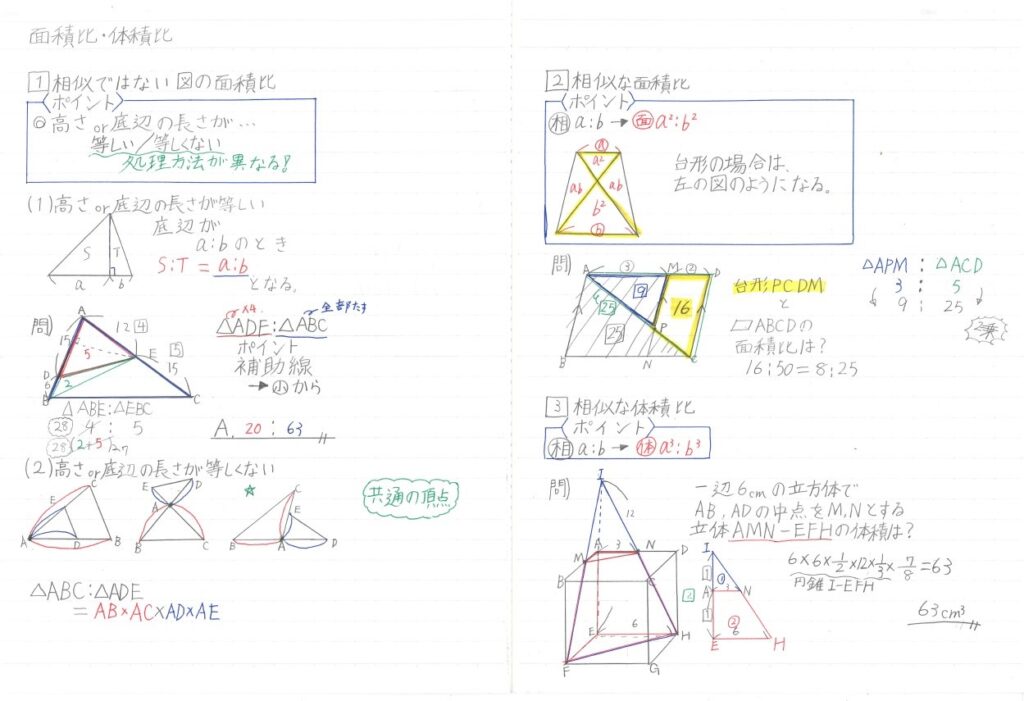 面積比・体積比
1 相似ではない図の面積比
〈ポイント〉
◎高さor底辺の長さが…
等しい/等しくない
処理方法が異なる!
(1)高さor底辺の長さが等しい
底辺が
a:bのとき
S:T=a:b
となる。
S T
a b
問)
A
12 4
15
5
E 5
15
D
6 2
B C
×4 全部たす
△ADE:△ABC
ポイント
補助線
→小から
△ABE:△EBC
28 4 : 5
28 (2+5)×7
A. 20 : 63
(2)高さor底辺の長さが等しくない
共通の頂点
C E A D B
E D A B C
☆ C E B A D
△ABC:△ADE
=AB×AC×AD×AE
2 相似な面積比
〈ポイント〉
相 a:b → 面 a²:b²
a
a²
ab ab
b²
b
台形の場合は、
左の図のようになる。
問)
A 3 M 2 D
9
25 16
25 P
B N C
台形PCDM
と
▱ABCDの
面積比は?
16:50=8:25
△APM : △ACD
3 : 5
9 : 25
2乗
3 相似な体積比
〈ポイント〉
相 a:b → 体 a³:b³
問)
I
12
A 3 N D
M
B C
2
E 6 H
F G
一辺6cmの立方体で
AB,ADの中点をM,Nとする
立体AMN-EFHの体積は?
I
1 1
A 3 N
1 2
E 6 H
6×6×1/2×12×1/3×7/8=63
円錐I-EFH
63cm³